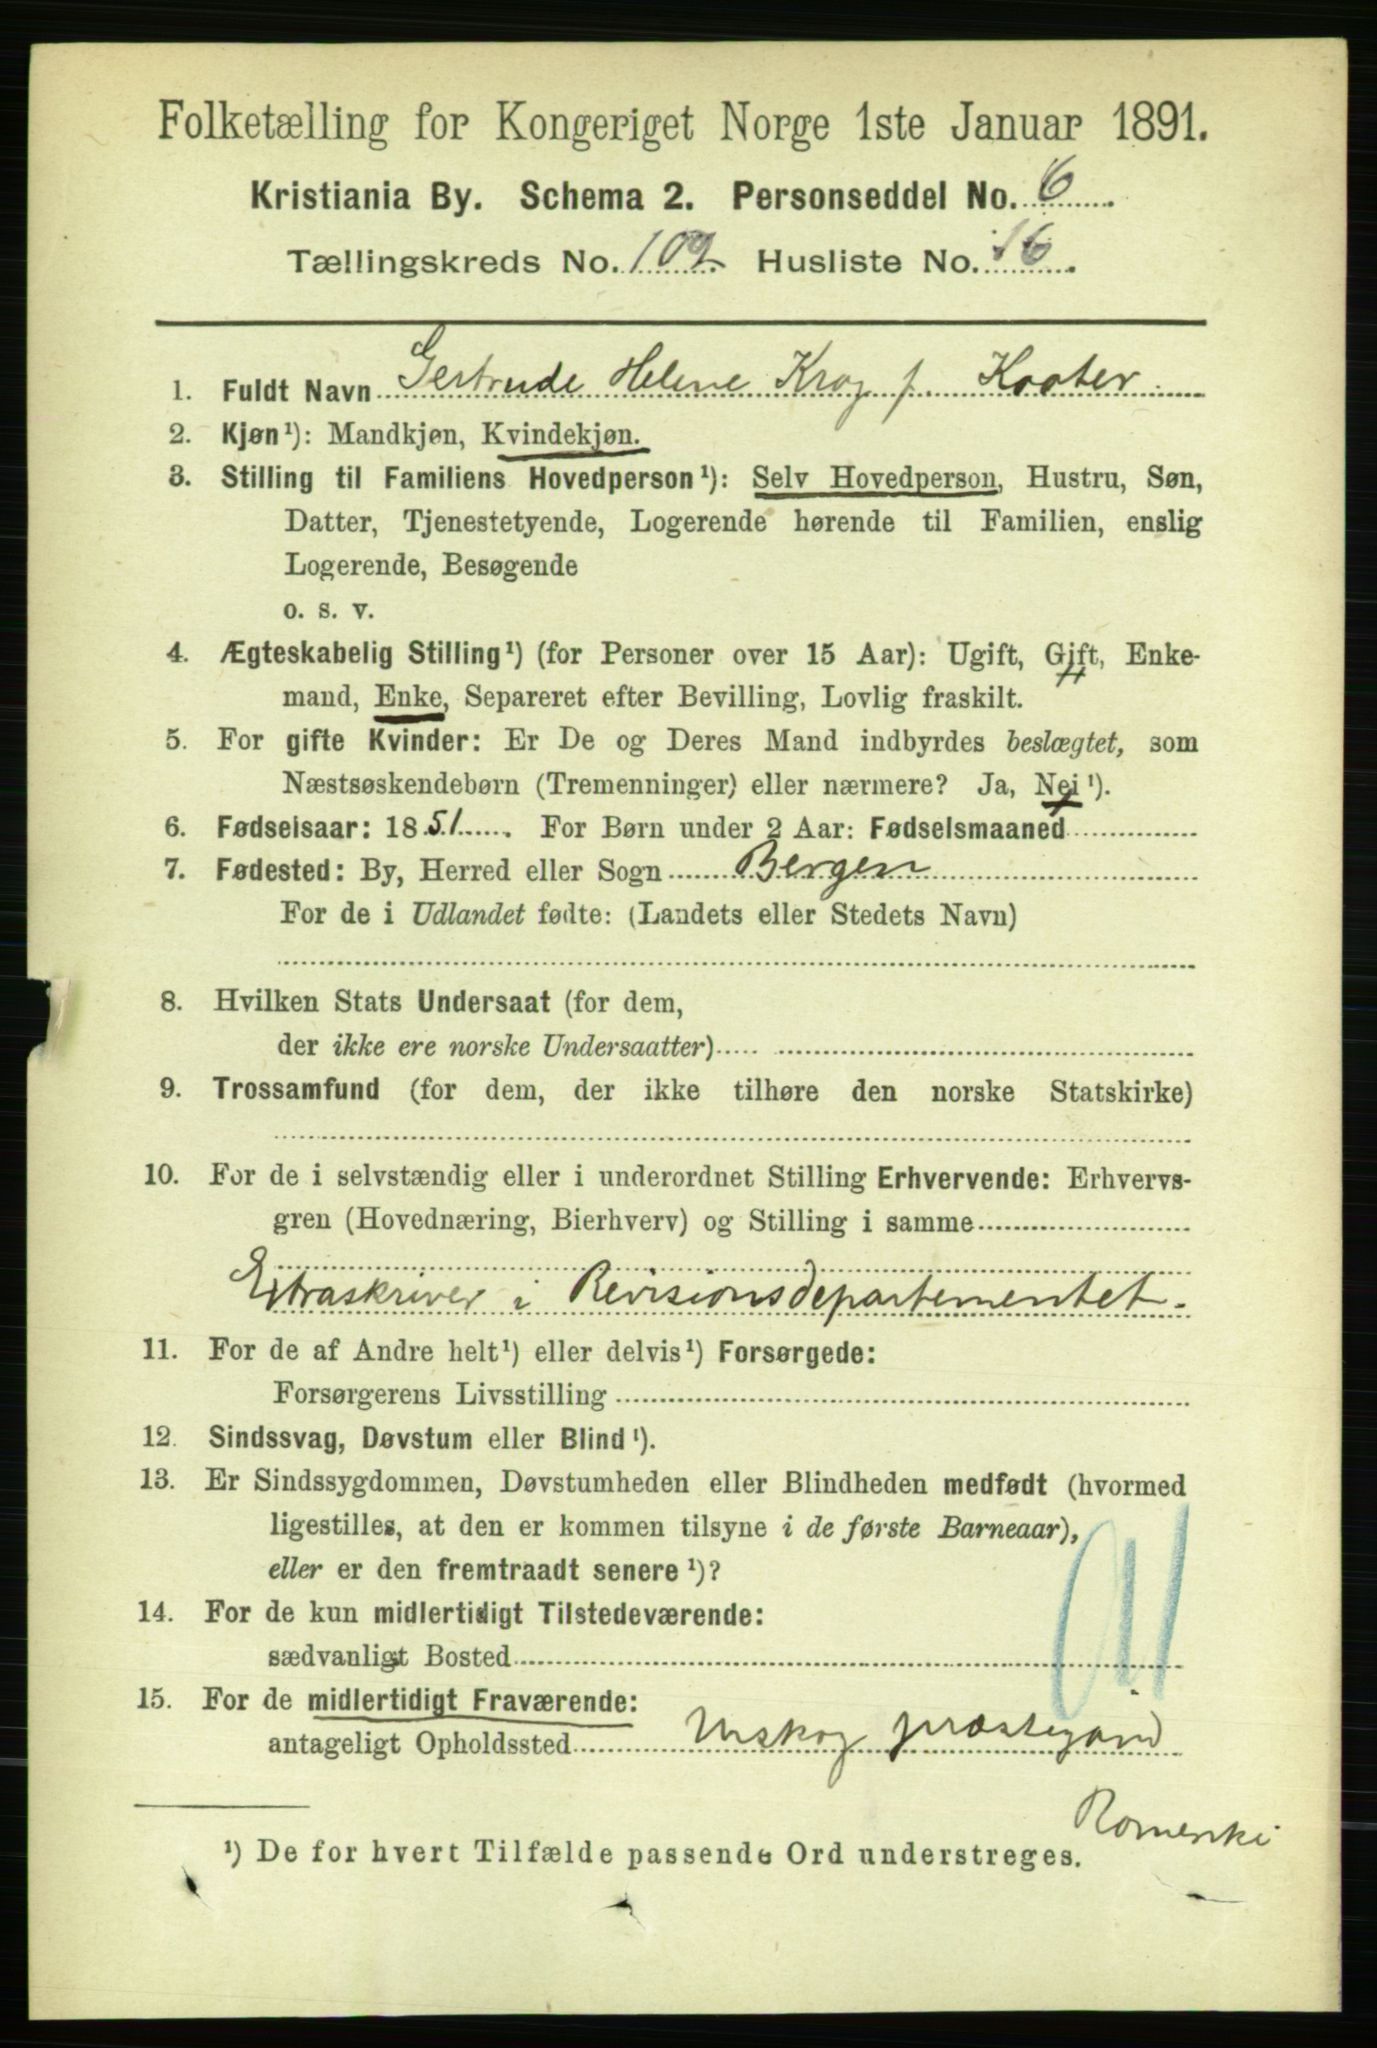 Folketælling for Kongeriget Norge 1ste Januar 1891.
Kristiania By. Schema 2. Personseddel No. 6
Tællingskreds No. 102. Husliste No. 16.
1. Fuldt Navn Gertrude Helene Krog f. Kooter
2. Kjøn¹): Mandkjøn, Kvindekjøn.
3. Stilling til Familiens Hovedperson¹): Selv Hovedperson, Hustru, Søn,
Datter, Tjenestetyende, Logerende hørende til Familien, enslig
Logerende, Besøgende
o. s. v.
4. Ægteskabelig Stilling¹) (for Personer over 15 Aar): Ugift, Gift, Enke-
mand, Enke, Separeret efter Bevilling, Lovlig fraskilt.
5. For gifte Kvinder: Er De og Deres Mand indbyrdes beslægtet, som
Næstsøskendebørn (Tremenninger) eller nærmere? Ja, Nei¹).
6. Fødselsaar: 1851. For Børn under 2 Aar: Fødselsmaaned
7. Fødested: By, Herred eller Sogn Bergen
For de i Udlandet fødte: (Landets eller Stedets Navn)
8. Hvilken Stats Undersaat (for dem,
der ikke ere norske Undersaatter)
9. Trossamfund (for dem, der ikke tilhøre den norske Statskirke)
10. For de i selvstændig eller i underordnet Stilling Erhvervende: Erhvervs-
gren (Hovednæring, Bierhverv) og Stilling i samme
Extraskriver i Revisionsdepartementet.
11. For de af Andre helt¹) eller delvis¹) Forsørgede:
Forsørgerens Livsstilling
12. Sindssvag, Døvstum eller Blind¹).
13. Er Sindssygdommen, Døvstumheden eller Blindheden medfødt (hvormed
ligestilles, at den er kommen tilsyne i de første Barneaar),
eller er den fremtraadt senere¹)?
14. For de kun midlertidigt Tilstedeværende:
sædvanligt Bosted
15. For de midlertidigt Fraværende:
antageligt Opholdssted Urskog præstegård
Romerike
¹) De for hvert Tilfælde passende Ord understreges.